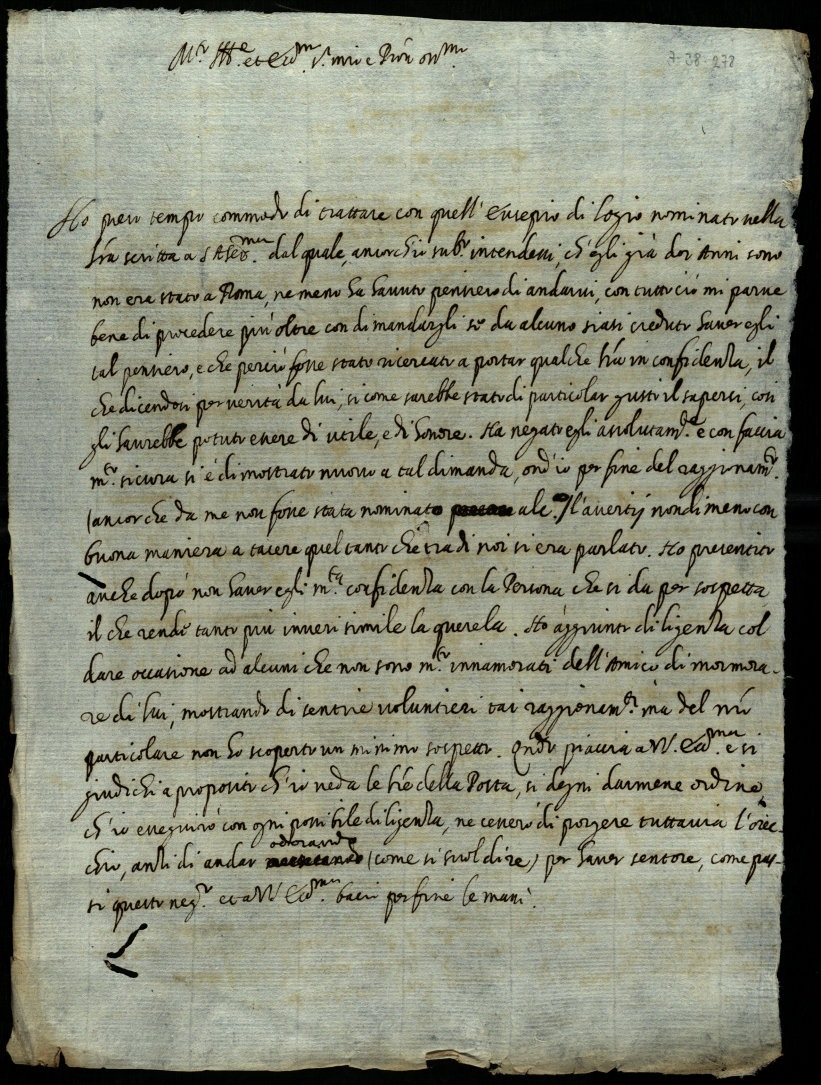 M.r Ill.e et Ecc.mo S.r mio e Pron oss.mo
7-38-278
Ho preso tempo commodo di trattare con quell' Eusepio di Logio nominato nella
l'ra scritta a S A Ser.ma dal quale, ancorchio sub.o intendessi, ch'egli già doi Anni sono
non era stato a Roma, ne meno ha havuto pensiero di andarvi, con tutto ciò mi parve
bene di procedere più oltre con dimandargli se da alcuno siasi creduto haver egli
tal pensiero, e che perciò fosse stato ricercato a portar qualche l'ra in confidenza, il
che dicendosi per verità da lui, si come sarebbe stato di particolar gusto il sapersi, così
gli haurebbe potuto essere di utile, e di honore. Ha negato egli assolutam.te e con faccia
m.to sicura si è dimostrato nuovo a tal dimanda, ond'io per fine del raggionam.to
(ancor che da me non fosse stata nominato alc.o) l'avertij nondimeno con
buona maniera a tacere quel tanto che tra di noi si era parlato. Ho presentito
anche dopò non haver egli m.ta confidenza con la Persona che si da per sospetta
il che rende tanto più inverisimile la querela. Ho aggiunto diligenza col
dare occasione ad alcuni che non sono m.to innamorati dell'Amico di mormora-
re di lui, mostrando di sentire voluntieri tai raggionam.ti ma del nro
particolare non ho scoperto un minimo sospetto. Onde piaccia a V.S. Ecc.ma e si
giudichi a proposito ch'io veda le l're della Posta, si degni darmene ordine,
ch'io esseguirò con ogni possibile diligenza, ne cesserò di porgere tuttavia l'orec-
chio, anzi di andar odorando (come si suol dire) per haver sentore, come pas-
si questo neg.o et a V.S. Ecc.ma bacio per fine le mani.